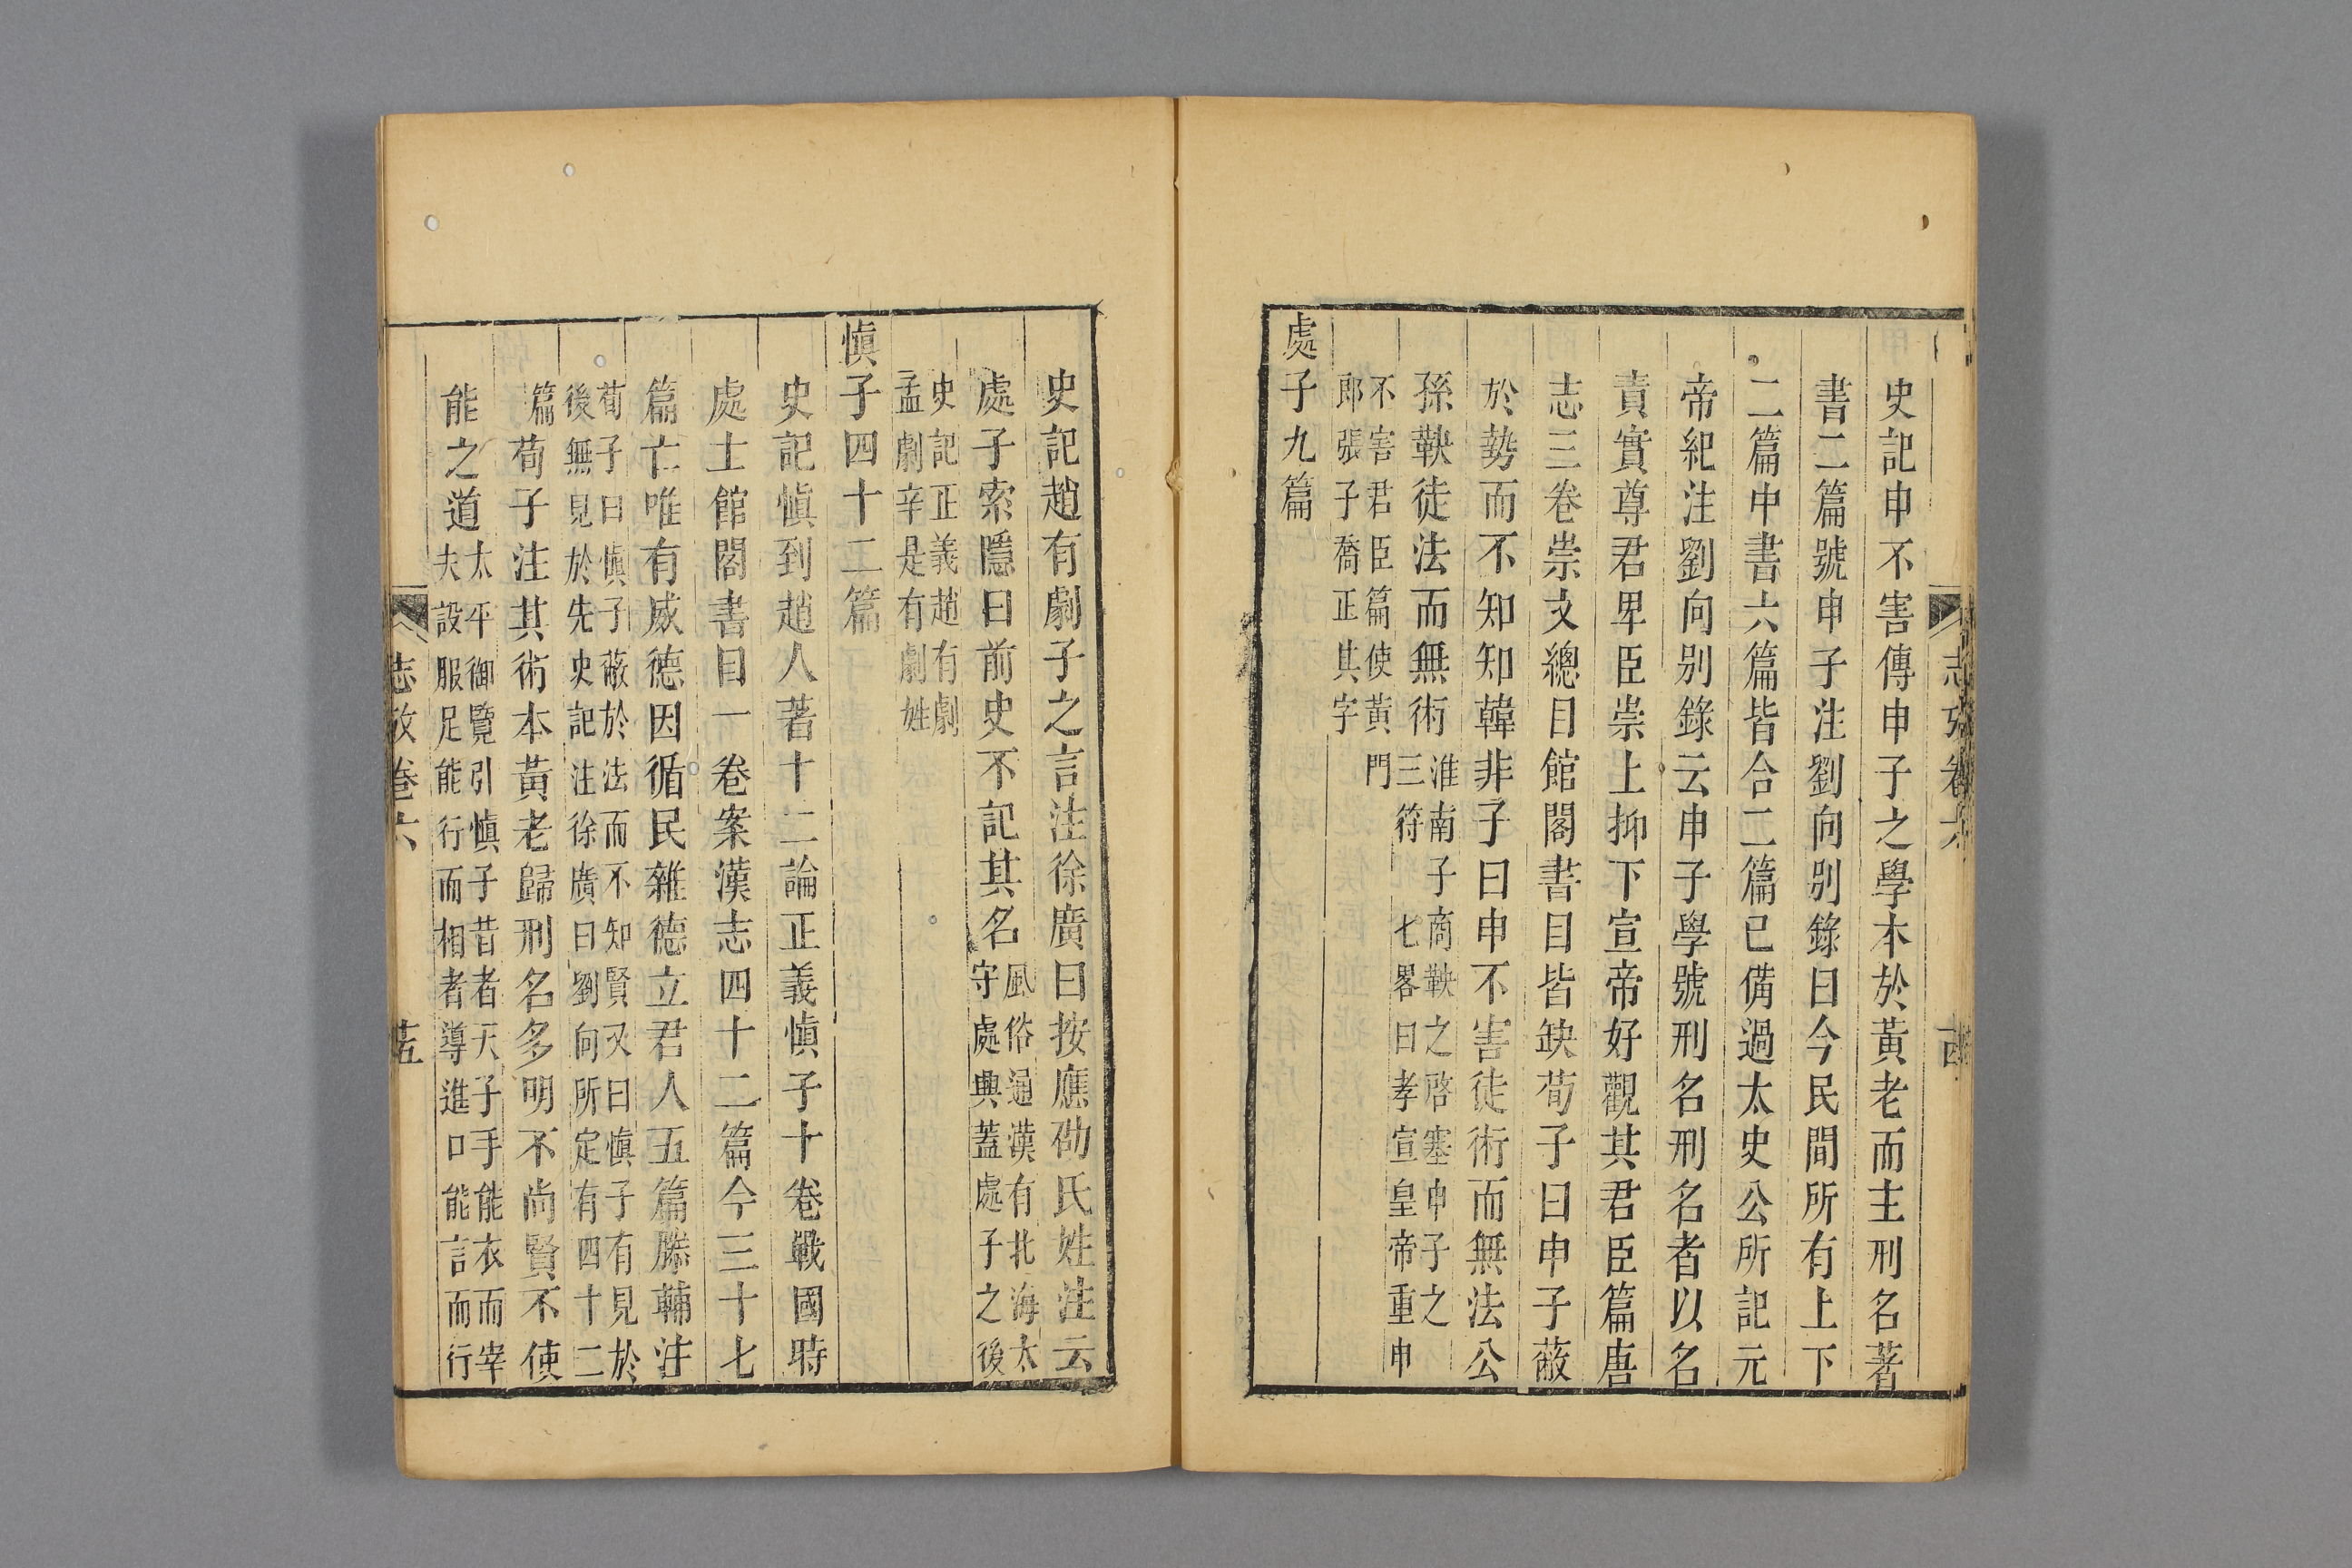 志攷卷六
史記申不害傳申子之學本於黃老而主刑名著
書二篇號申子注劉向別錄曰今民間所有上下
二篇中書六篇皆合二篇已備過太史公所記元
帝紀注劉向別錄云申子學號刑名刑名者以名
責實尊君卑臣崇上抑下宣帝好觀其君臣篇唐
志三卷崇文總目館閣書目皆缺荀子曰申子蔽
於勢而不知知韓非子曰申不害徒術而無法公
孫鞅徒法而無術淮南子商鞅之啓塞申子之
三符 七畧曰孝宣皇帝重申
不害君臣篇使黃門
郎張子喬正其字
處子九篇
史記趙有劇子之言注徐廣曰按應劭氏姓注云
處子索隱曰前史不記其名風俗通漢有北海太
守處興蓋處子之後
史記正義趙有劇
孟劇辛是有劇姓
愼子四十二篇
史記愼到趙人著十二論正義愼子十卷戰國時
處士館閣書目一卷案漢志四十二篇今三十七
篇亡唯有威德因循民雜德立君人五篇滕輔注
荀子曰愼子蔽於法而不知賢又曰愼子有見於
後無見於先史記注徐廣曰劉向所定有四十二
篇荀子注其術本黃老歸刑名多明不尚賢不使
能之道太平御覽引愼子昔者天子手能衣而宰
夫設服足能行而相者導進口能言而行
志攷卷六